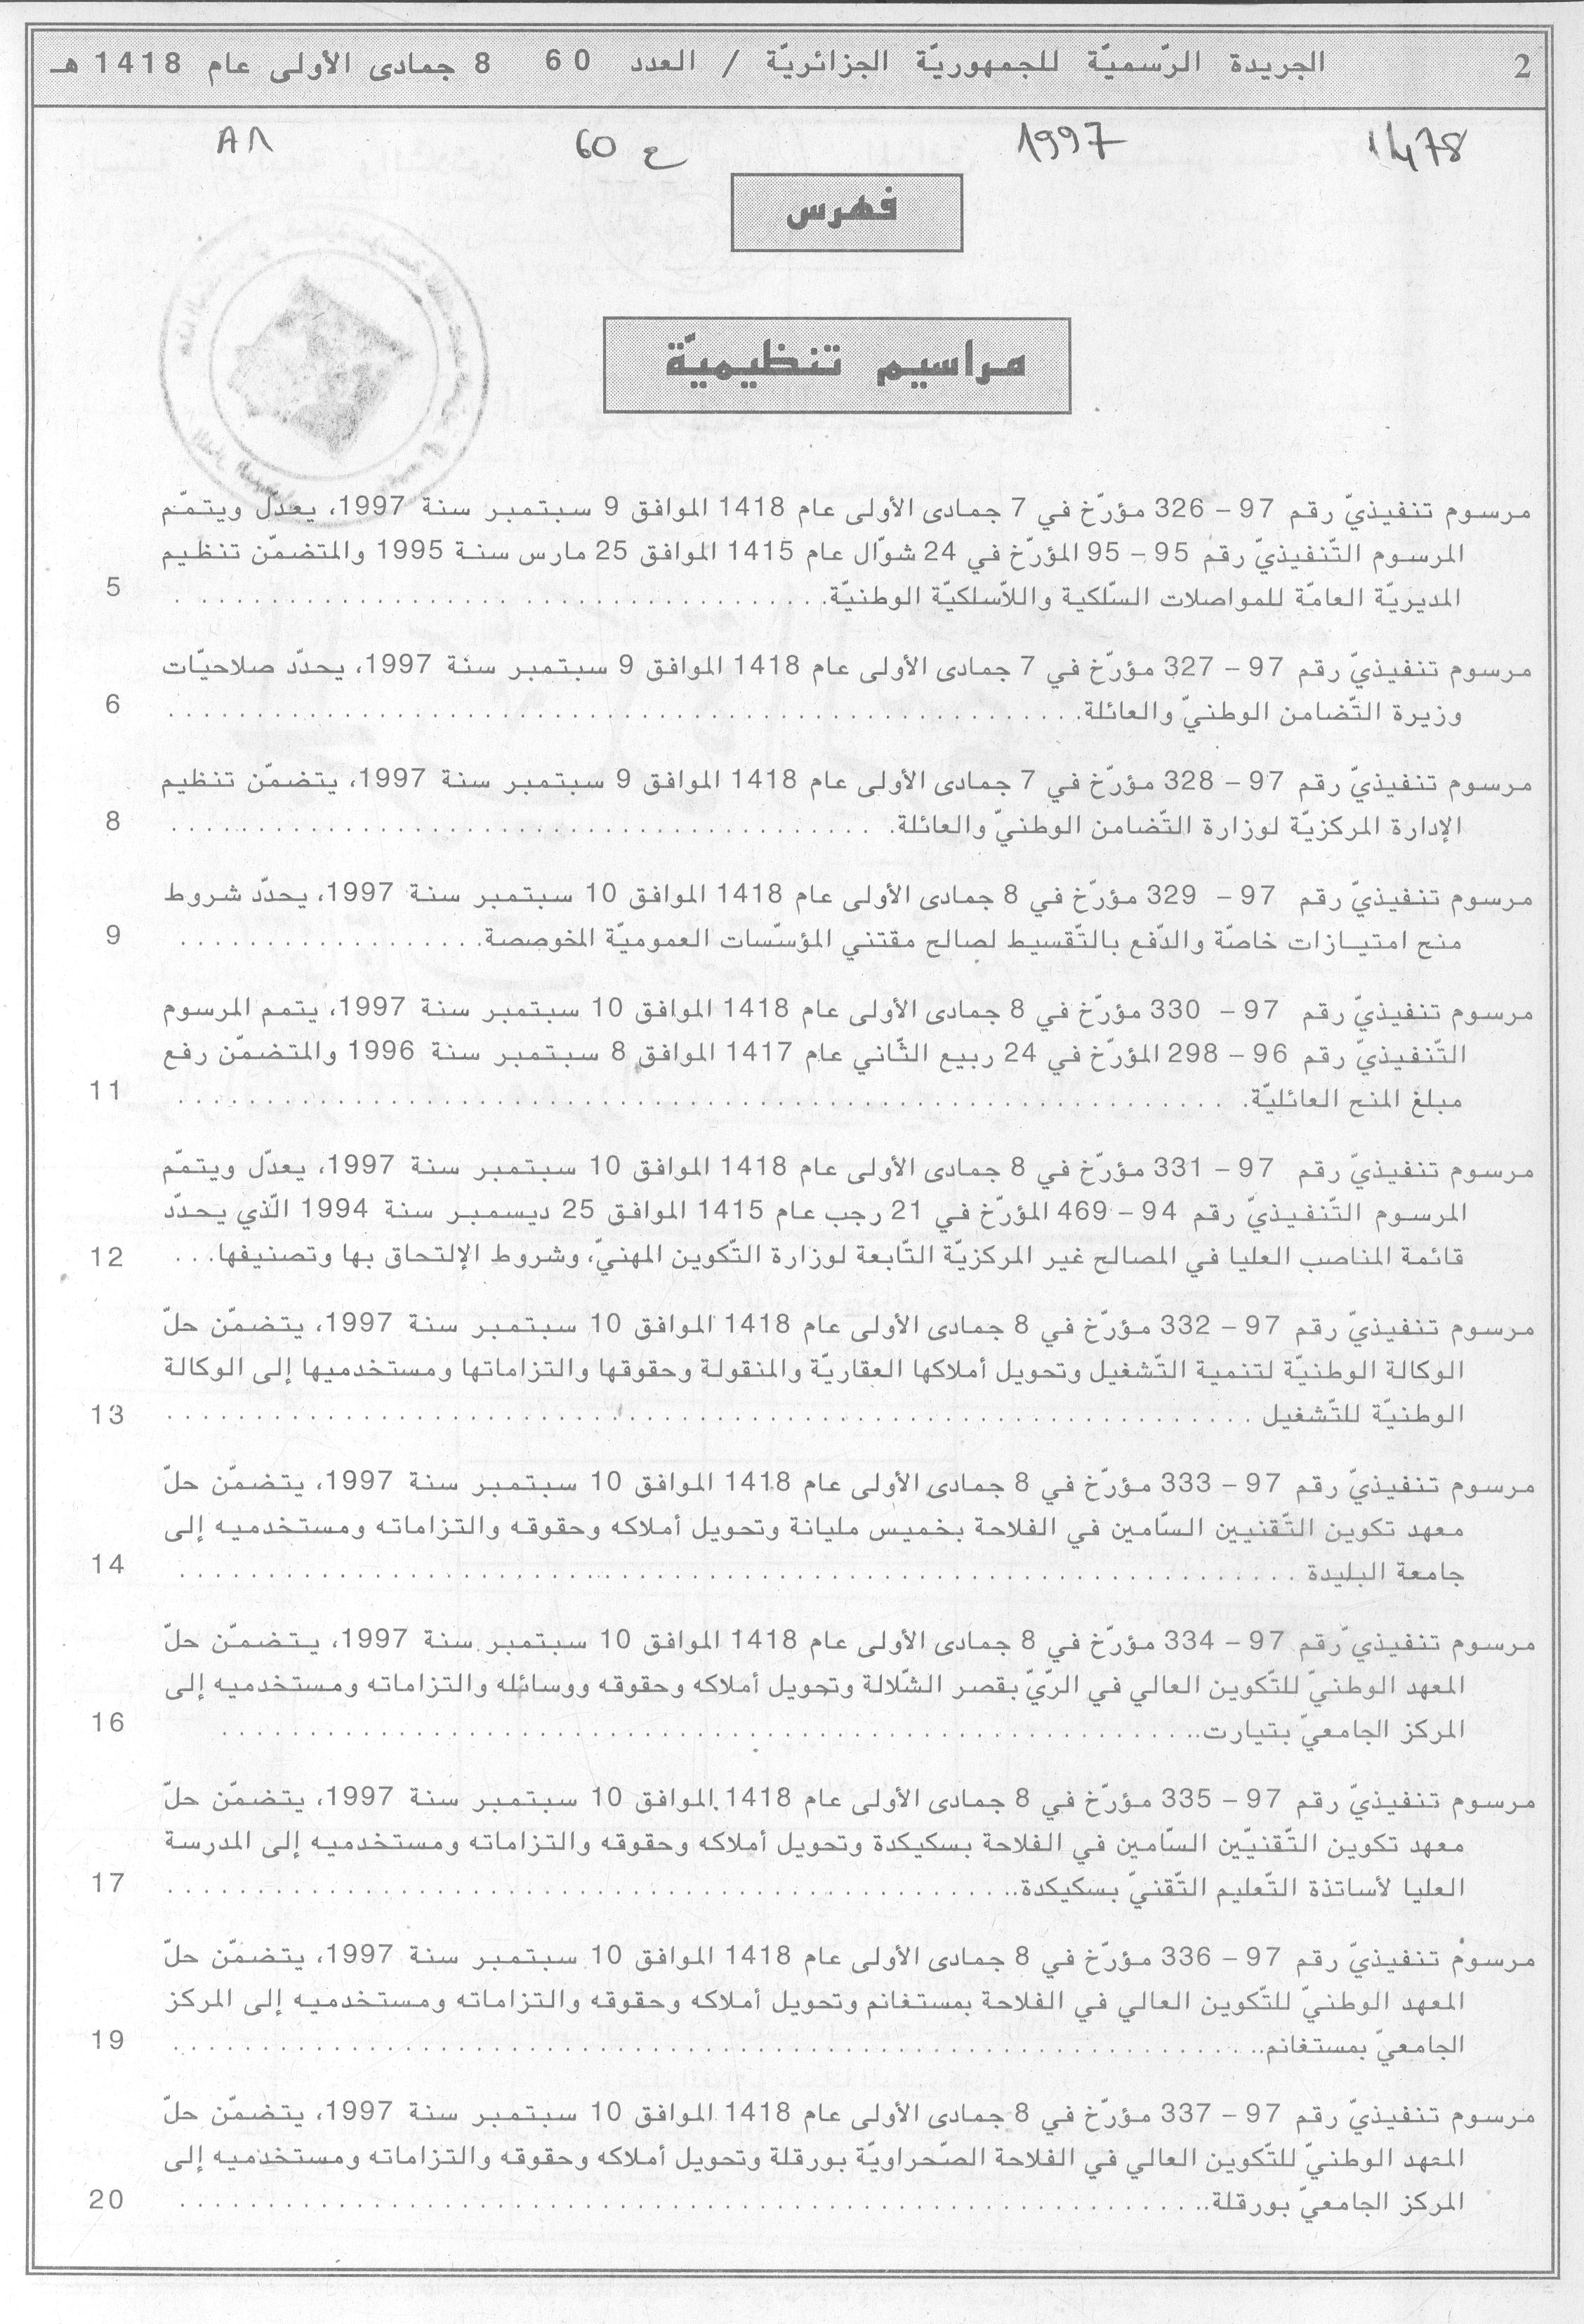 2 الجريدة الرّسميّة للجمهوريّة الجزائريّة / العدد 60 8 جمادى الأولى عام 1418 هـ
1478 1997 ع 60 A٨
فهرس
مراسيم تنظيميّة
مرسوم تنفيذيّ رقم 97 – 326 مؤرّخ في 7 جمادى الأولى عام 1418 الموافق 9 سبتمبر سنة 1997، يعدّل ويتمّم
المرسوم التّنفيذيّ رقم 95 – 95 المؤرّخ في 24 شوّال عام 1415 الموافق 25 مارس سنة 1995 والمتضمّن تنظيم
المديريّة العامّة للمواصلات السّلكية واللاّسلكيّة الوطنيّة. . . . . . . . . . . . . . . . . . . . 5
مرسوم تنفيذيّ رقم 97 – 327 مؤرّخ في 7 جمادى الأولى عام 1418 الموافق 9 سبتمبر سنة 1997، يحدّد صلاحيّات
وزيرة التّضامن الوطنيّ والعائلة. . . . . . . . . . . . . . . . . . . . 6
مرسوم تنفيذيّ رقم 97 – 328 مؤرّخ في 7 جمادى الأولى عام 1418 الموافق 9 سبتمبر سنة 1997، يتضمّن تنظيم
الإدارة المركزيّة لوزارة التّضامن الوطنيّ والعائلة. . . . . . . . . . . . . . . . . . . . 8
مرسوم تنفيذيّ رقم 97 – 329 مؤرّخ في 8 جمادى الأولى عام 1418 الموافق 10 سبتمبر سنة 1997، يحدّد شروط
منح امتيازات خاصّة والدّفع بالتّقسيط لصالح مقتني المؤسّسات العموميّة المخوصصة. . . . . . . . . . . 9
مرسوم تنفيذيّ رقم 97 – 330 مؤرّخ في 8 جمادى الأولى عام 1418 الموافق 10 سبتمبر سنة 1997، يتمم المرسوم
التّنفيذيّ رقم 96 – 298 المؤرّخ في 24 ربيع الثّاني عام 1417 الموافق 8 سبتمبر سنة 1996 والمتضمّن رفع
مبلغ المنح العائليّة. . . . . . . . . . . . . . . . . . . . 11
مرسوم تنفيذيّ رقم 97 – 331 مؤرّخ في 8 جمادى الأولى عام 1418 الموافق 10 سبتمبر سنة 1997، يعدّل ويتمّم
المرسوم التّنفيذيّ رقم 94 – 469 المؤرّخ في 21 رجب عام 1415 الموافق 25 ديسمبر سنة 1994 الّذي يحدّد
قائمة المناصب العليا في المصالح غير المركزيّة التّابعة لوزارة التّكوين المهنيّ، وشروط الإلتحاق بها وتصنيفها. . . 12
مرسوم تنفيذيّ رقم 97 – 332 مؤرّخ في 8 جمادى الأولى عام 1418 الموافق 10 سبتمبر سنة 1997، يتضمّن حلّ
الوكالة الوطنيّة لتنمية التّشغيل وتحويل أملاكها العقاريّة والمنقولة وحقوقها والتزاماتها ومستخدميها إلى الوكالة
الوطنيّة للتّشغيل . . . . . . . . . . . . . . . . . . . . 13
مرسوم تنفيذيّ رقم 97 – 333 مؤرّخ في 8 جمادى الأولى عام 1418 الموافق 10 سبتمبر سنة 1997، يتضمّن حلّ
معهد تكوين التّقنيين السّامين في الفلاحة بخميس مليانة وتحويل أملاكه وحقوقه والتزاماته ومستخدميه إلى
جامعة البليدة . . . . . . . . . . . . . . . . . . . . 14
مرسوم تنفيذيّ رقم 97 – 334 مؤرّخ في 8 جمادى الأولى عام 1418 الموافق 10 سبتمبر سنة 1997، يتضمّن حلّ
المعهد الوطنيّ للتّكوين العالي في الرّيّ بقصر الشّلالة وتحويل أملاكه وحقوقه ووسائله والتزاماته ومستخدميه إلى
المركز الجامعيّ بتيارت. . . . . . . . . . . . . . . . . . . . 16
مرسوم تنفيذيّ رقم 97 – 335 مؤرّخ في 8 جمادى الأولى عام 1418 الموافق 10 سبتمبر سنة 1997، يتضمّن حلّ
معهد تكوين التّقنيّين السّامين في الفلاحة بسكيكدة وتحويل أملاكه وحقوقه والتزاماته ومستخدميه إلى المدرسة
العليا لأساتذة التّعليم التّقنيّ بسكيكدة. . . . . . . . . . . . . . . . . . . . 17
مرسوم تنفيذيّ رقم 97 – 336 مؤرّخ في 8 جمادى الأولى عام 1418 الموافق 10 سبتمبر سنة 1997، يتضمّن حلّ
المعهد الوطنيّ للتّكوين العالي في الفلاحة بمستغانم وتحويل أملاكه وحقوقه والتزاماته ومستخدميه إلى المركز
الجامعيّ بمستغانم. . . . . . . . . . . . . . . . . . . . 19
مرسوم تنفيذيّ رقم 97 – 337 مؤرّخ في 8 جمادى الأولى عام 1418 الموافق 10 سبتمبر سنة 1997، يتضمّن حلّ
المعهد الوطنيّ للتّكوين العالي في الفلاحة الصّحراويّة بورقلة وتحويل أملاكه وحقوقه والتزاماته ومستخدميه إلى
المركز الجامعيّ بورقلة. . . . . . . . . . . . . . . . . . . . 20